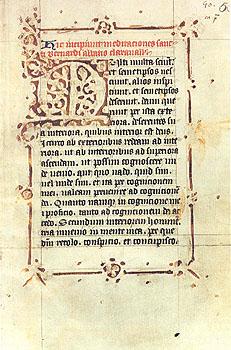 Hic incipiunt meditationes sanc
ti bernardi abbatis clarevallis
Multi multa sciunt
et semetipsos nes
ciunt, alios inspici
unt, et semetipsos
deserunt, deum que
runt per ista exte
riora, deserentes su
a interiora, quibus interior est deus.
Idcirco ab exterioribus redeam ad inte
riora, et ab interioribus ad superiora
ascendam, ut possim cognoscere un
de venio, aut quo vado, quid sum,
vel unde sim, et ita per cognitionem
mei, valeam pervenire ad cognitione
dei. Quanto namque in cognitione me
i proficio, tanto ad cognitionem dei ac
cedo. Secundum interiorem hominem
tria in mente mea, per que
deum recolo, conspicio, et concupisco.